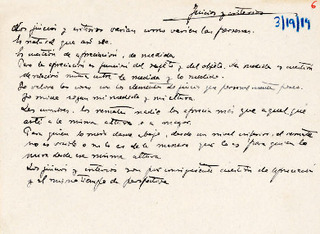 6
Juicios y criterios
3/19/19
Los juicios y criterios varían como varían las personas.
Es natural que así sea.
Es cuestión de apreciación, de medida.
Pero la apreciación es función del sujeto y del objeto. La medida es cuestión
de relación mutua entre la medida y lo medido.
Yo valoro las cosas con los elementos de juicio que personalmente poseo.
Yo mido según mi medida y mi altura.
Las cumbres, los remates nadie los aprecia más que aquel que
está a la misma altura o a mayor.
Para quien lo mira desde abajo, desde un nivel inferior, el remate
no es visible o no lo es de la manera que lo es para quien lo
mira desde su misma altura.
Los juicios y criterios son por consiguiente cuestión de apreciación
y al mismo tiempo de perspectiva.